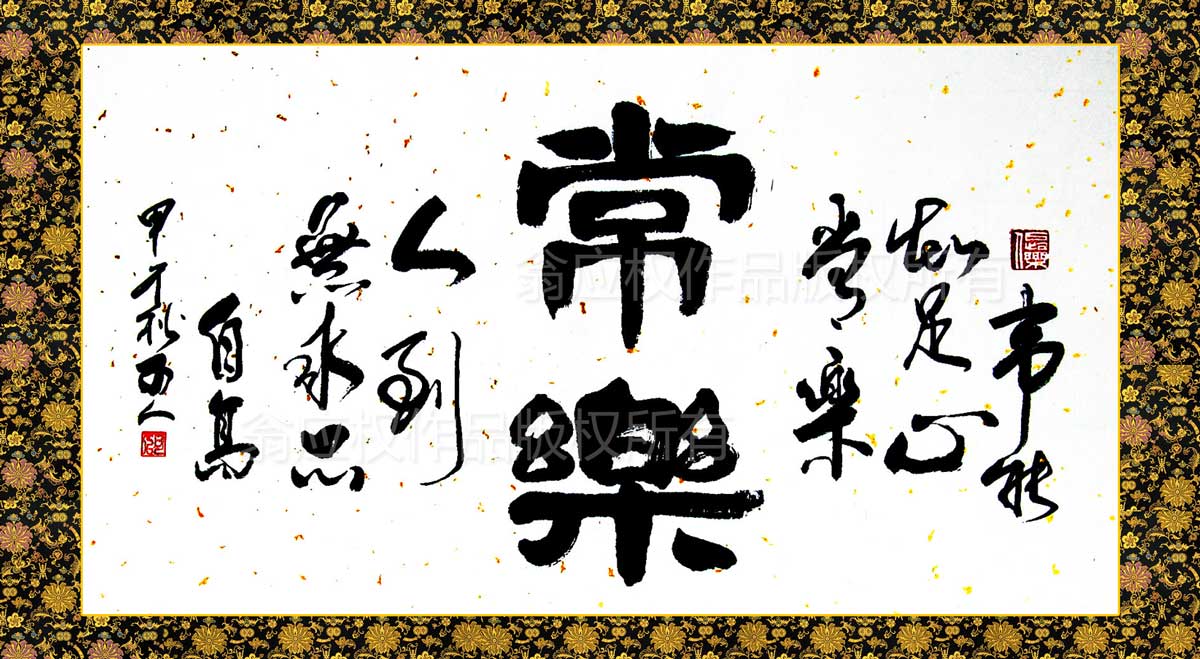 事能
知足心
常樂
常樂
人到
無求品
自高
甲午秋
翁应权作品版权所有
翁应权作品版权所有